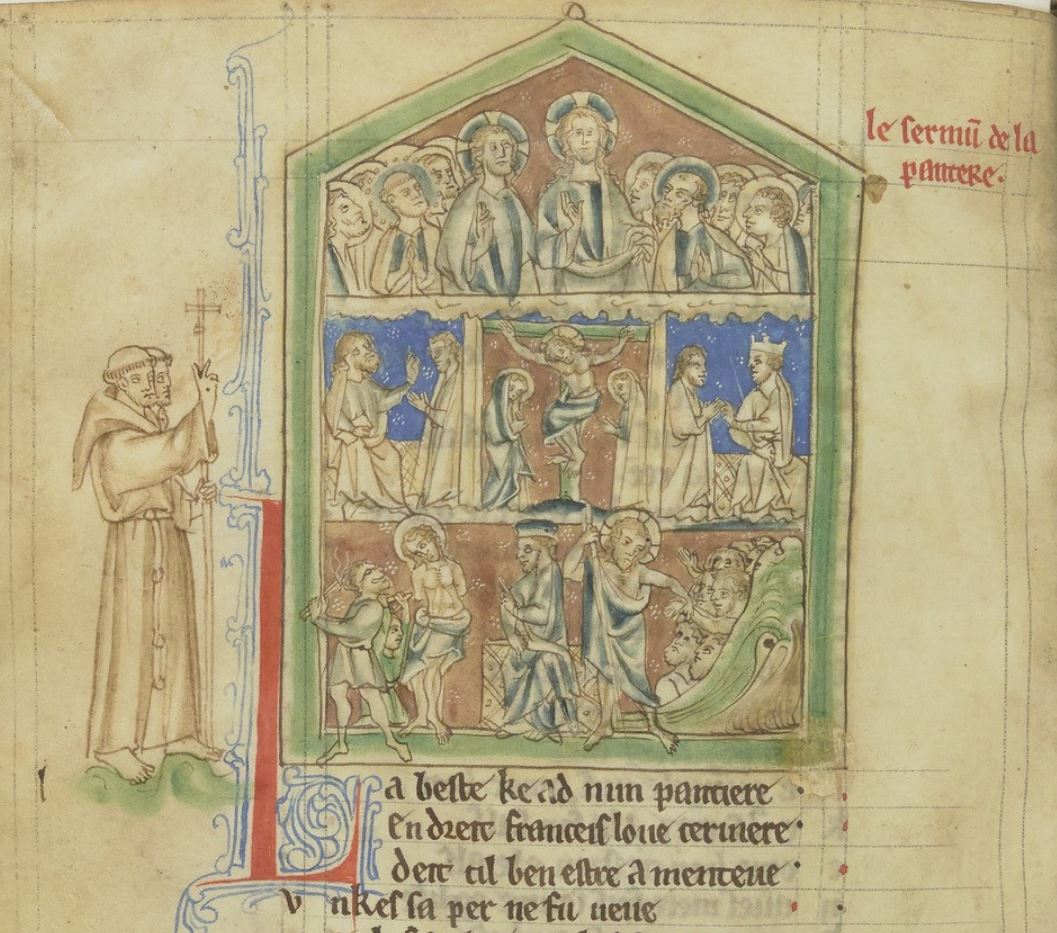 le sermū de la
pantere.
La beste ke ad nun pantiere
En dreit franceis loue cerviere
deit cil ben estre a menteue
Vnkes sa per ne fu ueue